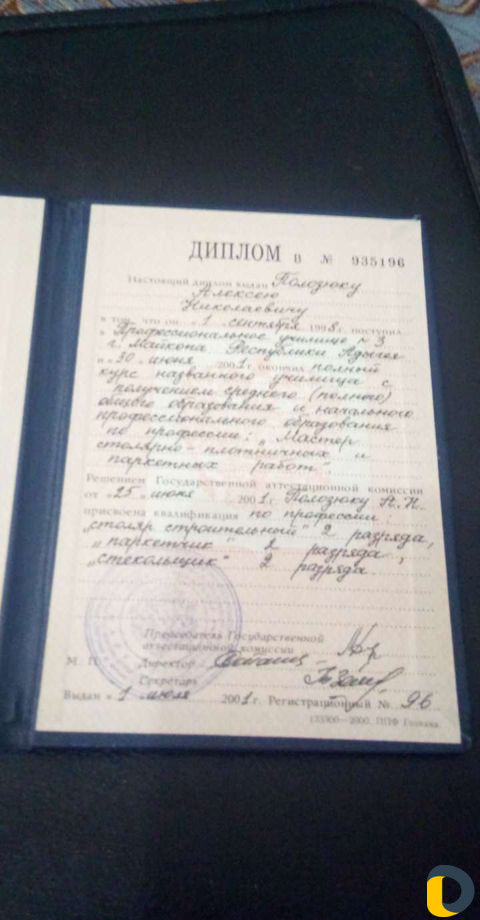 ДИПЛОМ В № 935196
Настоящий диплом выдан Полозюку
Алексею
Николаевичу
в том, что он „1 „ сентября 1998 г. поступил
в Профессиональное училище №3
г. Майкопа Республики Адыгея
и „30 „ июня 2001 г. окончил полный
курс названного училища с
получением среднего (полного)
общего образования и начального
профессионального образования
по профессии: „Мастер
столярно-плотничных и
паркетных работ".
Решением Государственной аттестационной комиссии
от „25 „ июня 2001 г. Полозюку А.Н.
присвоена квалификация по профессии:
„столяр строительный" 2 разряда,
„паркетчик" 2 разряда,
„стекольщик" 2 разряда
Председатель Государственной
аттестационной комиссии
М. П. Директор
Секретарь
Выдан „1 „ июля 2001 г. Регистрационный № 96
133300—2000, ППФ Гознака.